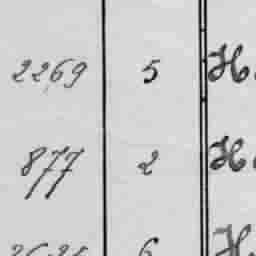 2269 5 H.
877 2 H.